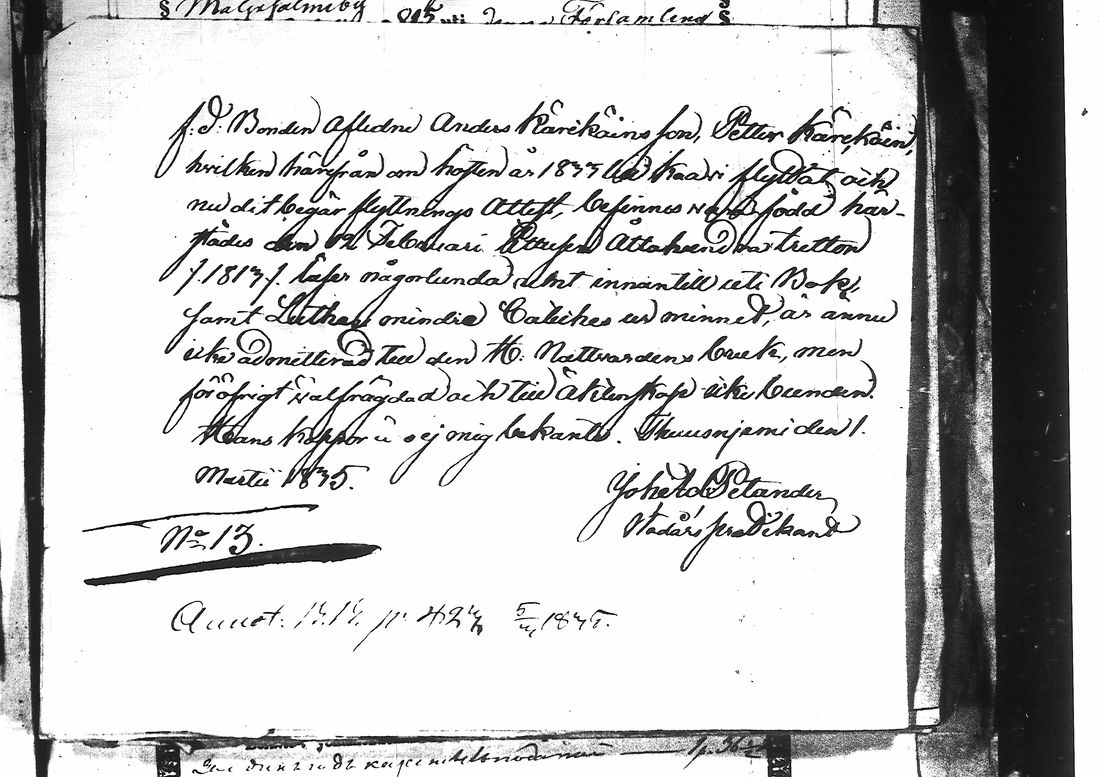 Församling
f: d: Bonden afledne Anders Kärikäins son, Petter Kärikäin,
hvilken härifrån om hösten år 1833 till Kaavi flyttat, och
nu dit begär flyttnings Attest, befinnes vara född här-
städes den 12 Februari Ettusen Åttahundra tretton
/.1813./. Läser någorlunda rent innantill uti Bok,
samt Luthers mindre Cateches ur minnet, är ännu
icke admitterad till den H: Nattvardens bruk, men
föröfrigt välfrägdad och till Äktenskap icke bunden.
Hans koppor äro ej mig bekante. Thuusnjemi den 1.
Martii 1835.
Petander
Nådårs predikant
No 13.
Annot. p. 423 1835.